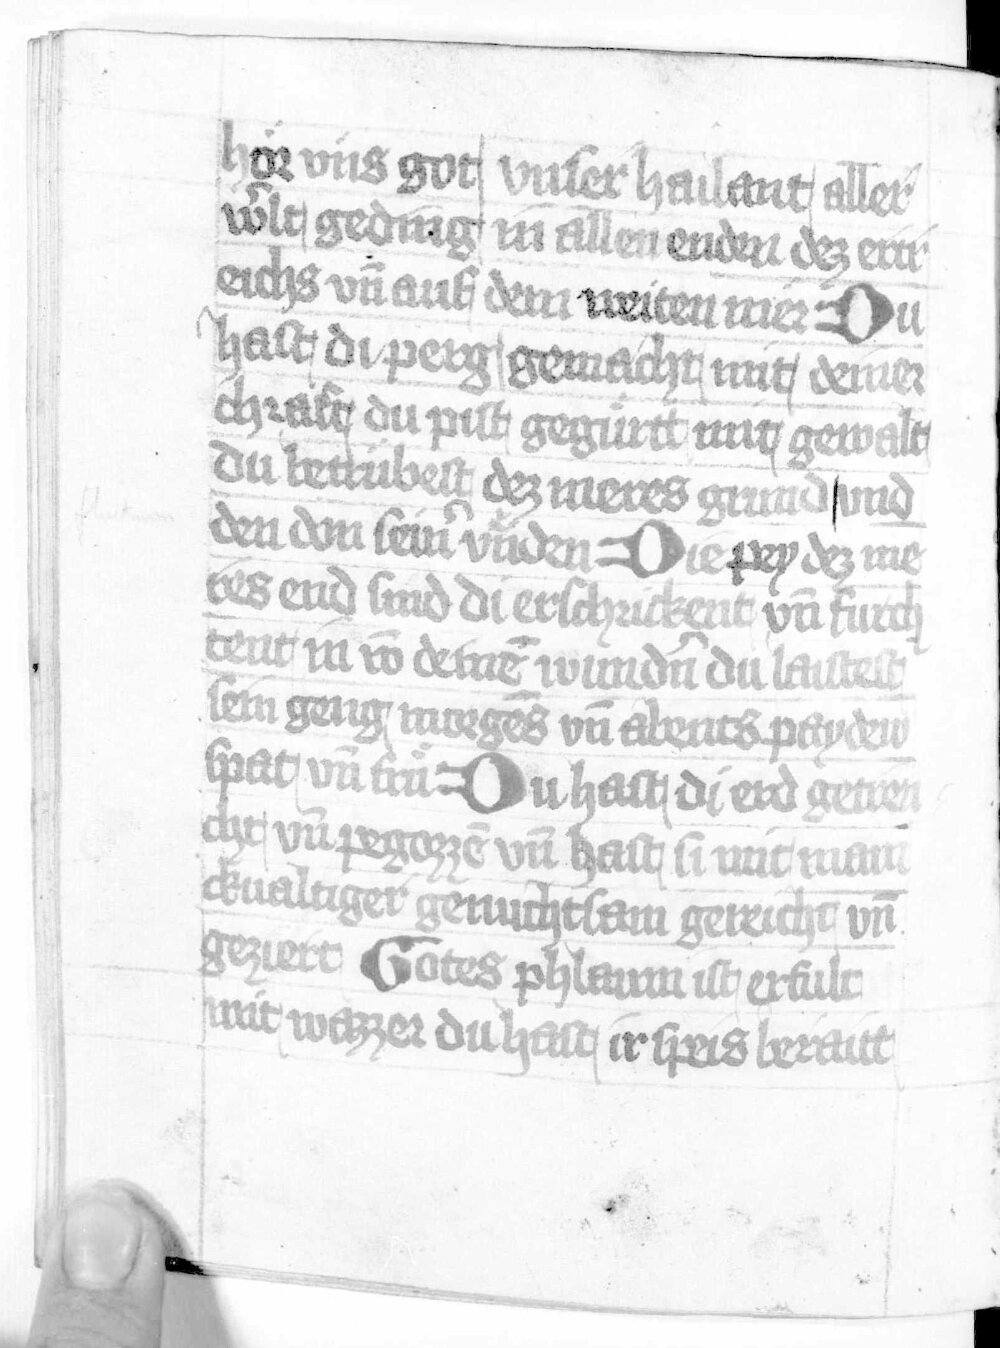 hör vns got vnser hailant aller
wͤlt geding in allen enden dez ertr
eichs vn̄ auf dem weiten mer Du
hast di perg gemacht mit deiner
chraft du pist gegürtt mit gewalt
Du betrübest dez meres grund vnd
den don sein̉ vnden Die pey dez me
res end sind di erschrickent vn̄ furch
tent in vō deinē wundn̉ du laistest
sein geng morgēs vn̄ abents paydew
spat vn̄ frů Du hast di erd getren
cht vn̄ pegozzē vn̄ hast si mit mani
ckualtiger genuchtsam gereicht vn̄
geziert Gotes phlaum ist erfult
mit wazzer du hast ir speis beraitt